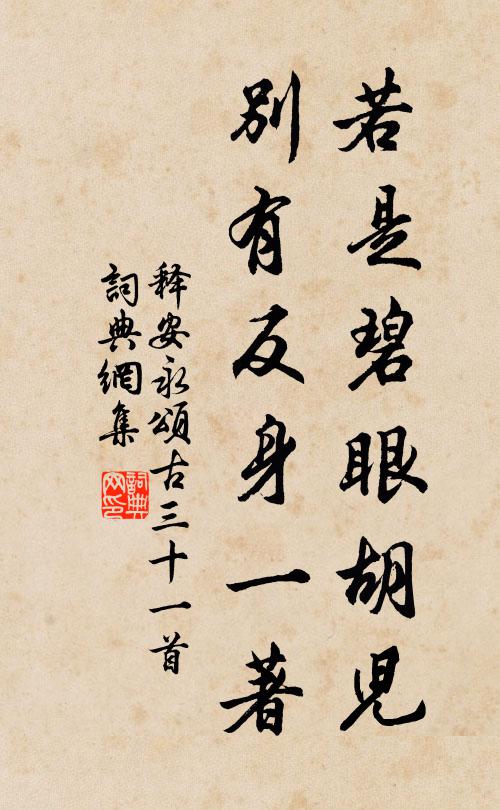 若是碧眼胡児
別有反身一著
释安永頌古三十一首
詞典網集
詞典
网印